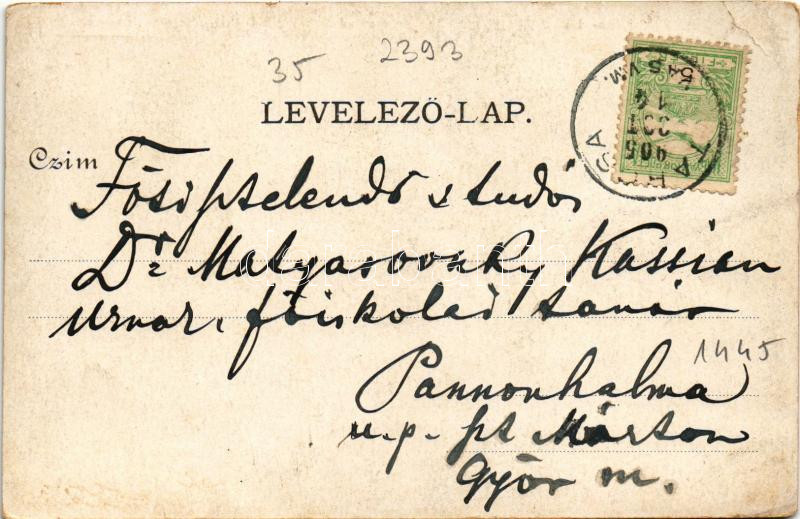 35 2393
LEVELEZŐ-LAP.
905 OKT 14
VASV.M.
Czim
Főtiszteltendő s tudós
Dr Matyasovszky Kassian
urnak, főiskolai tanár
1445
Pannonhalma
u.p. szt Márton
Győr m.